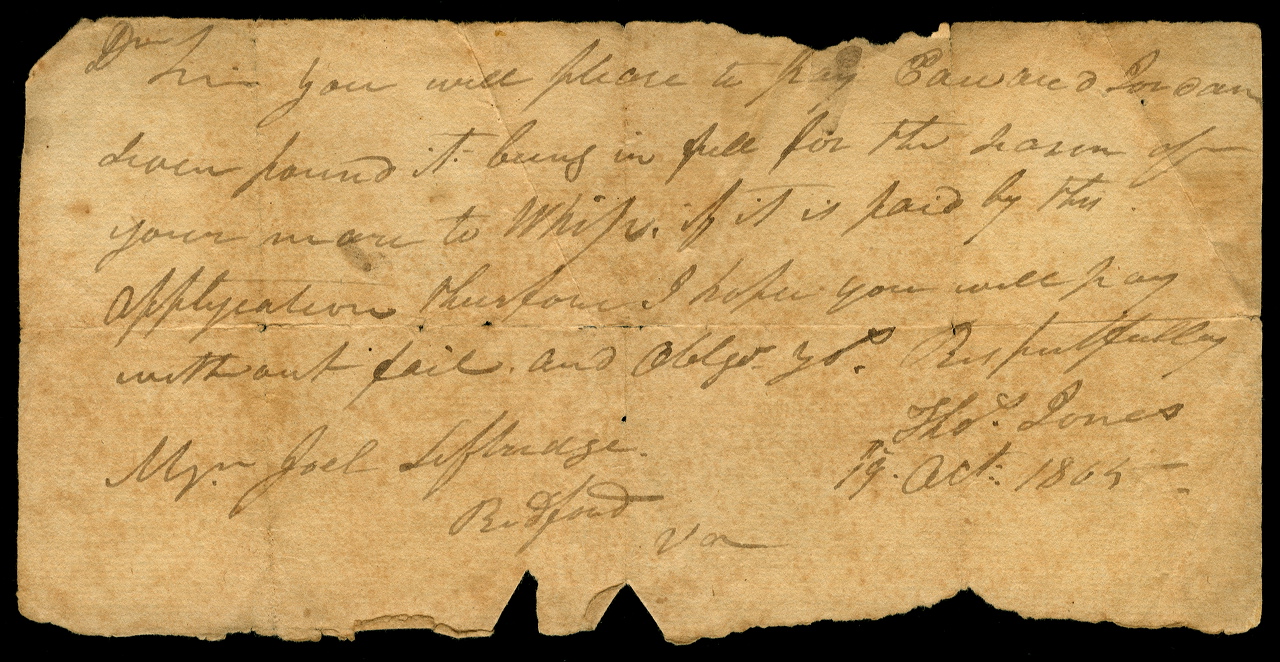 Dear
Sir you will please to pay Edward Jordan
seven pound it being in full for the season of
your mare to Whip. if it is paid by this
application therefore I hope you will pay
without fail. and Oblge. yrs. Respectfully
Thos. Jones
Mjr Joel Leftwidge.
19 Oct. 1805
Bedford
Va